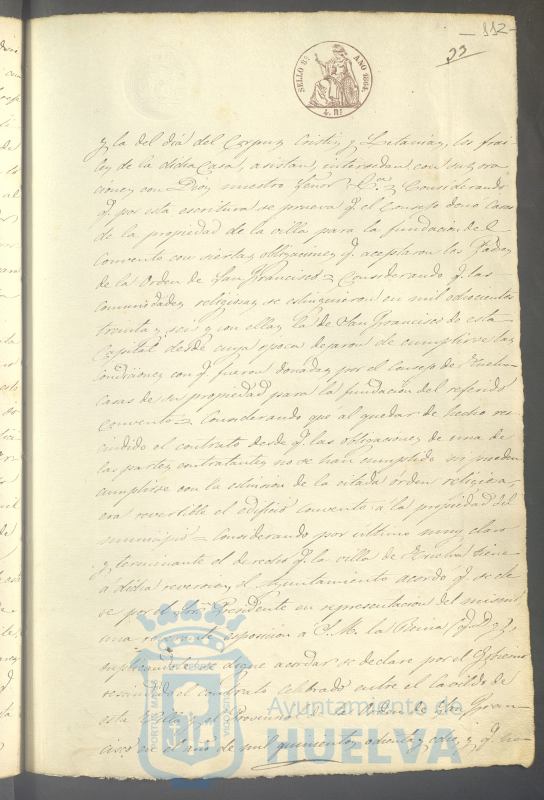 112-
33
SELLO 8º AÑO 1864.
4. Rs
y la del dia del Corpus Cristi, y Letanias, los frai-
les de la dicha Casa, asistan, intersedan con sus ora
ciones con Dios nuestro Señor &ª Considerando
q. por esta escritura se prueva q. el Consejo dono casas
de la propiedad de la villa para la fundacion del
Convento con siertas obligaciones q. aceptaron los Padres
de la Orden de San Francisco = Considerando q. las
comunidades religiosas se estinguieron en mil ochocientos
treinta y seis y con ellas la de San Francisco de esta
Capital desde cuya epoca dejaron de cumplirse las
condiciones con q. fueron donadas por el Consejo de Huelva
casas de su propiedad para la fundacion del referido
Convento = Considerando que al quedar de hecho res-
cindido el contrato desde q. las obligaciones de una de
las partes contratantes no se han cumplido ni pueden
cumplirse con la estincion de la citada orden religiosa,
era revertible el edificio convento a la propiedad del
municipio = Considerando por ultimo muy claro
y terminante el derecho q. la villa de Huelva tiene
á dicha reversion, el Ayuntamiento acordo q. se ele-
se por el Sor. Presidente en representacion del mismo
una reverente esposicion a S. M. la Reina (q. D. g.)
suplicandole se digne acordar se declare por el Gobierno
rescindido el contrato celebrado entre el Cavildo de
esta Villa y el Provincial de la Orden de San Fran-
cisco en el año de mil quinientos ochenta y ocho, y q.
Ayuntamiento de
HUELVA